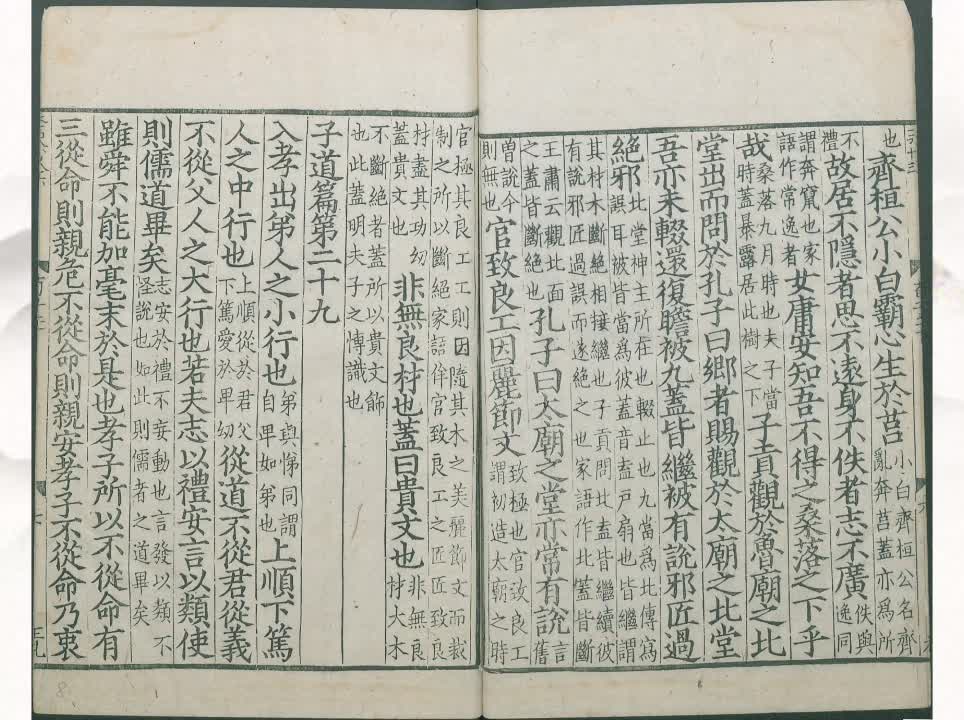 也齊桓公小白霸心生於莒小白齊桓公名齊亂奔莒蓋亦爲所
不禮故居不隱者思不遠身不佚者志不廣佚與逸同
謂奔竄也家語作常逸者女庸安知吾不得之桑落之下乎
哉桑落九月時也夫子當時蓋暴露居此樹之下子貢觀於魯廟之北
堂出而問於孔子曰鄉者賜觀於太廟之北堂
吾亦未輟還復瞻被九蓋皆繼被有說邪匠過
絕邪北堂神主所在也輟止也九當爲北傳寫誤耳被皆當爲彼蓋音盍戶扇也皆繼謂
其材木斷絕相接繼也子貢問北盍皆繼續彼有說邪匠過誤而遂絕之也家語作北蓋皆斷
王肅云觀北面之蓋皆斷絕也孔子曰太廟之堂亦常有說言舊
曾說今則無也官致良工因麗節文致極也官致良工謂初造太廟之時
官極其良工工則因隨其木之美麗節文而裁制之所以斷絕家語作官致良工之匠匠致良
材盡其功功蓋貴文也非無良材也蓋曰貴文也非無良材大木
不斷絕者蓋所以貴文飾也此蓋明夫子之博識也
子道篇第二十九
入孝出弟人之小行也弟與悌同謂自卑如弟也上順下篤
人之中行也上順從於君父下篤愛於卑幼從道不從君從義
不從父人之大行也若夫志以禮安言以類使
則儒道畢矣志安於禮不妄動也言發以類不怪說也如此則儒者之道畢矣
雖舜不能加毫末於是也孝子所以不從命有
三從命則親危不從命則親安孝子不從命乃衷